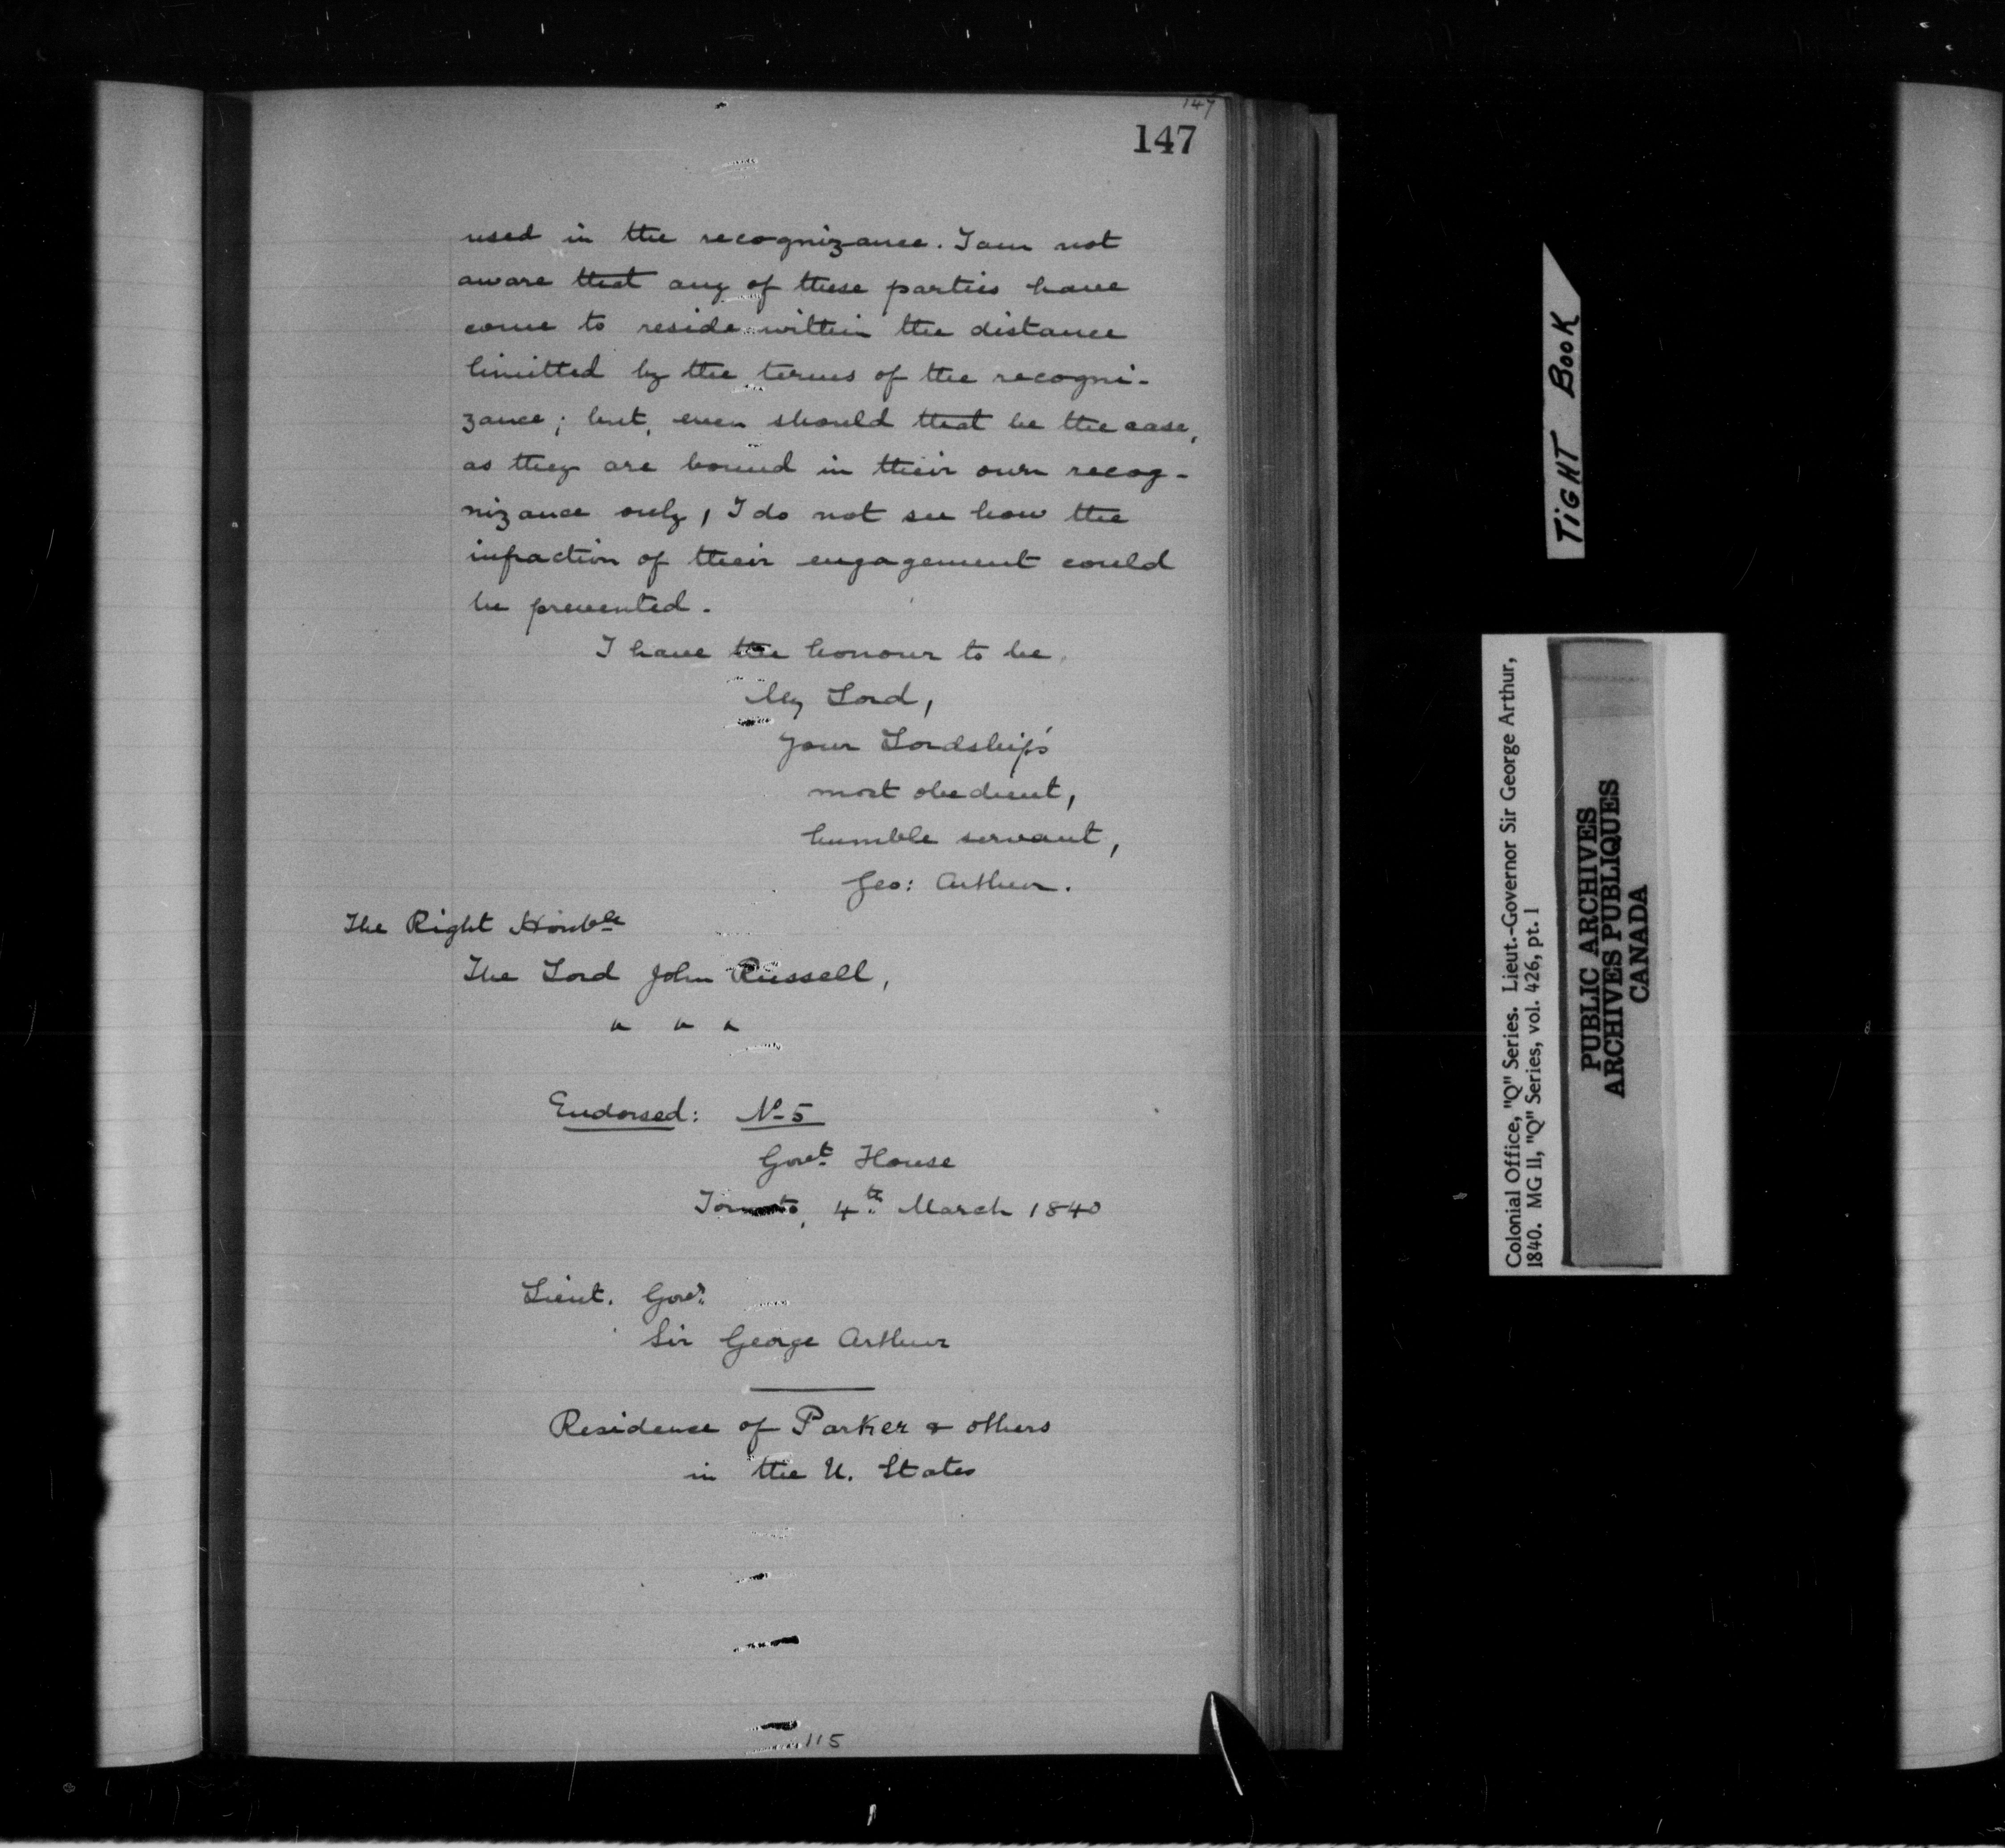 147
147
used in the recognizance. I am not
aware that any of these parties have
come to reside within the distance
limitted by the terms of the recogni-
zance; but, even should that be the case,
as they are bound in their own recog-
nizance only, I do not see how the
infraction of their engagement could
be prevented.
I have the honour to be,
My Lord,
Your Lordship's
most obedient,
humble servant,
Geo: Arthur.
The Right Honble
The Lord John Russell,
" " "
Endorsed: No 5
Govt. House
Toronto, 4th March 1840
Lieut. Govr.
Sir George Arthur
Residence of Parker & others
in the U. States
115
TIGHT BOOK
Colonial Office, "Q" Series. Lieut.-Governor Sir George Arthur,
1840. MG 11, "Q" Series, vol. 426, pt. 1
PUBLIC ARCHIVES
ARCHIVES PUBLIQUES
CANADA